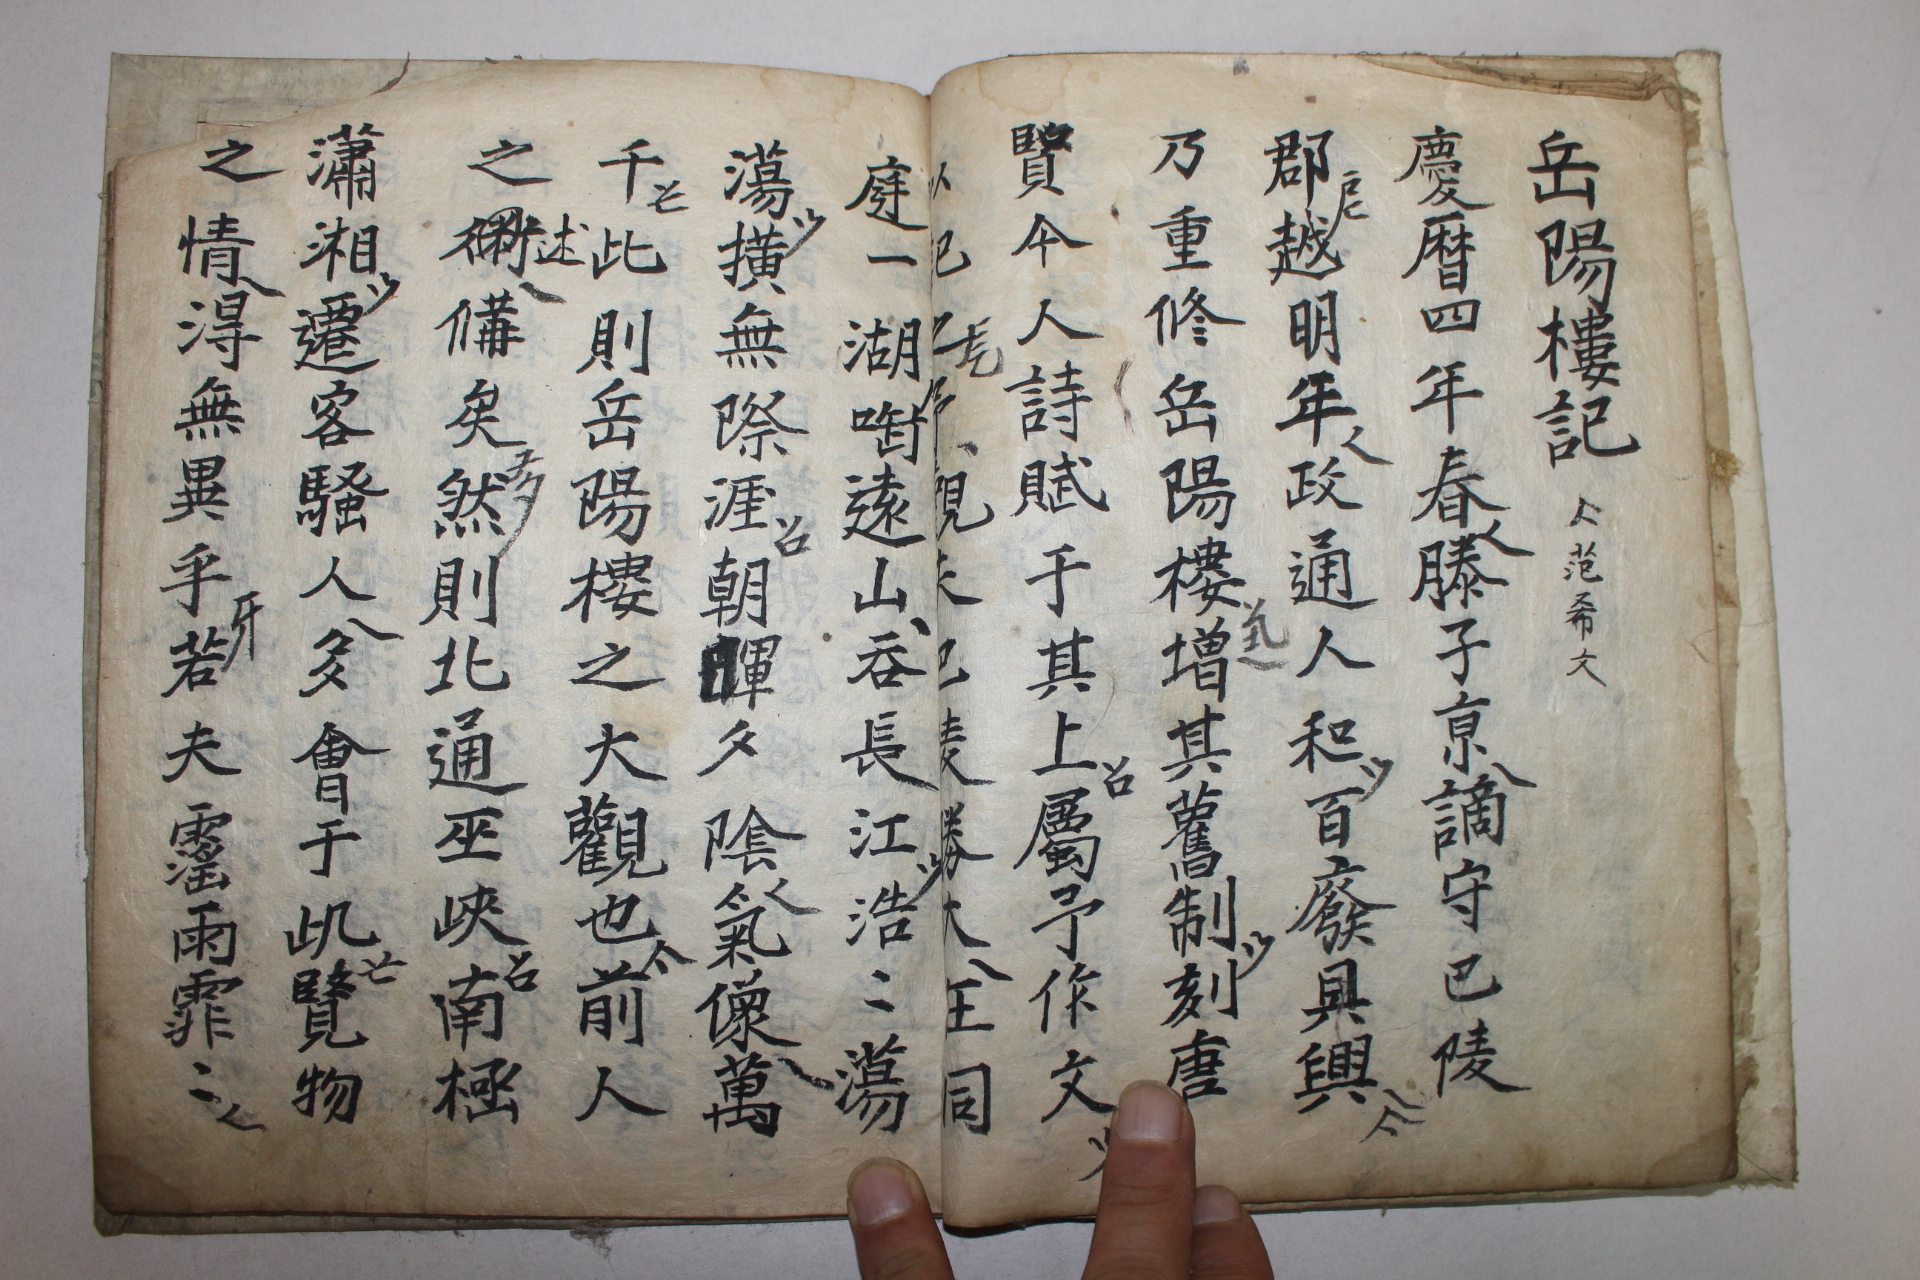 岳陽樓記 范希文
慶曆四年春滕子京謫守巴陵
郡越明年政通人和百廢具興
乃重修岳陽樓增其舊制刻唐
賢今人詩賦于其上屬予作文
以記之予觀夫巴陵勝大在洞
庭一湖啣遠山吞長江浩〻蕩
蕩橫無際涯朝暉夕陰氣像萬
千此則岳陽樓之大觀也前人
之備矣然則北通巫峽南極
述
瀟湘遷客騷人多會于此覽物
之情得無異乎若夫霪雨霏〻